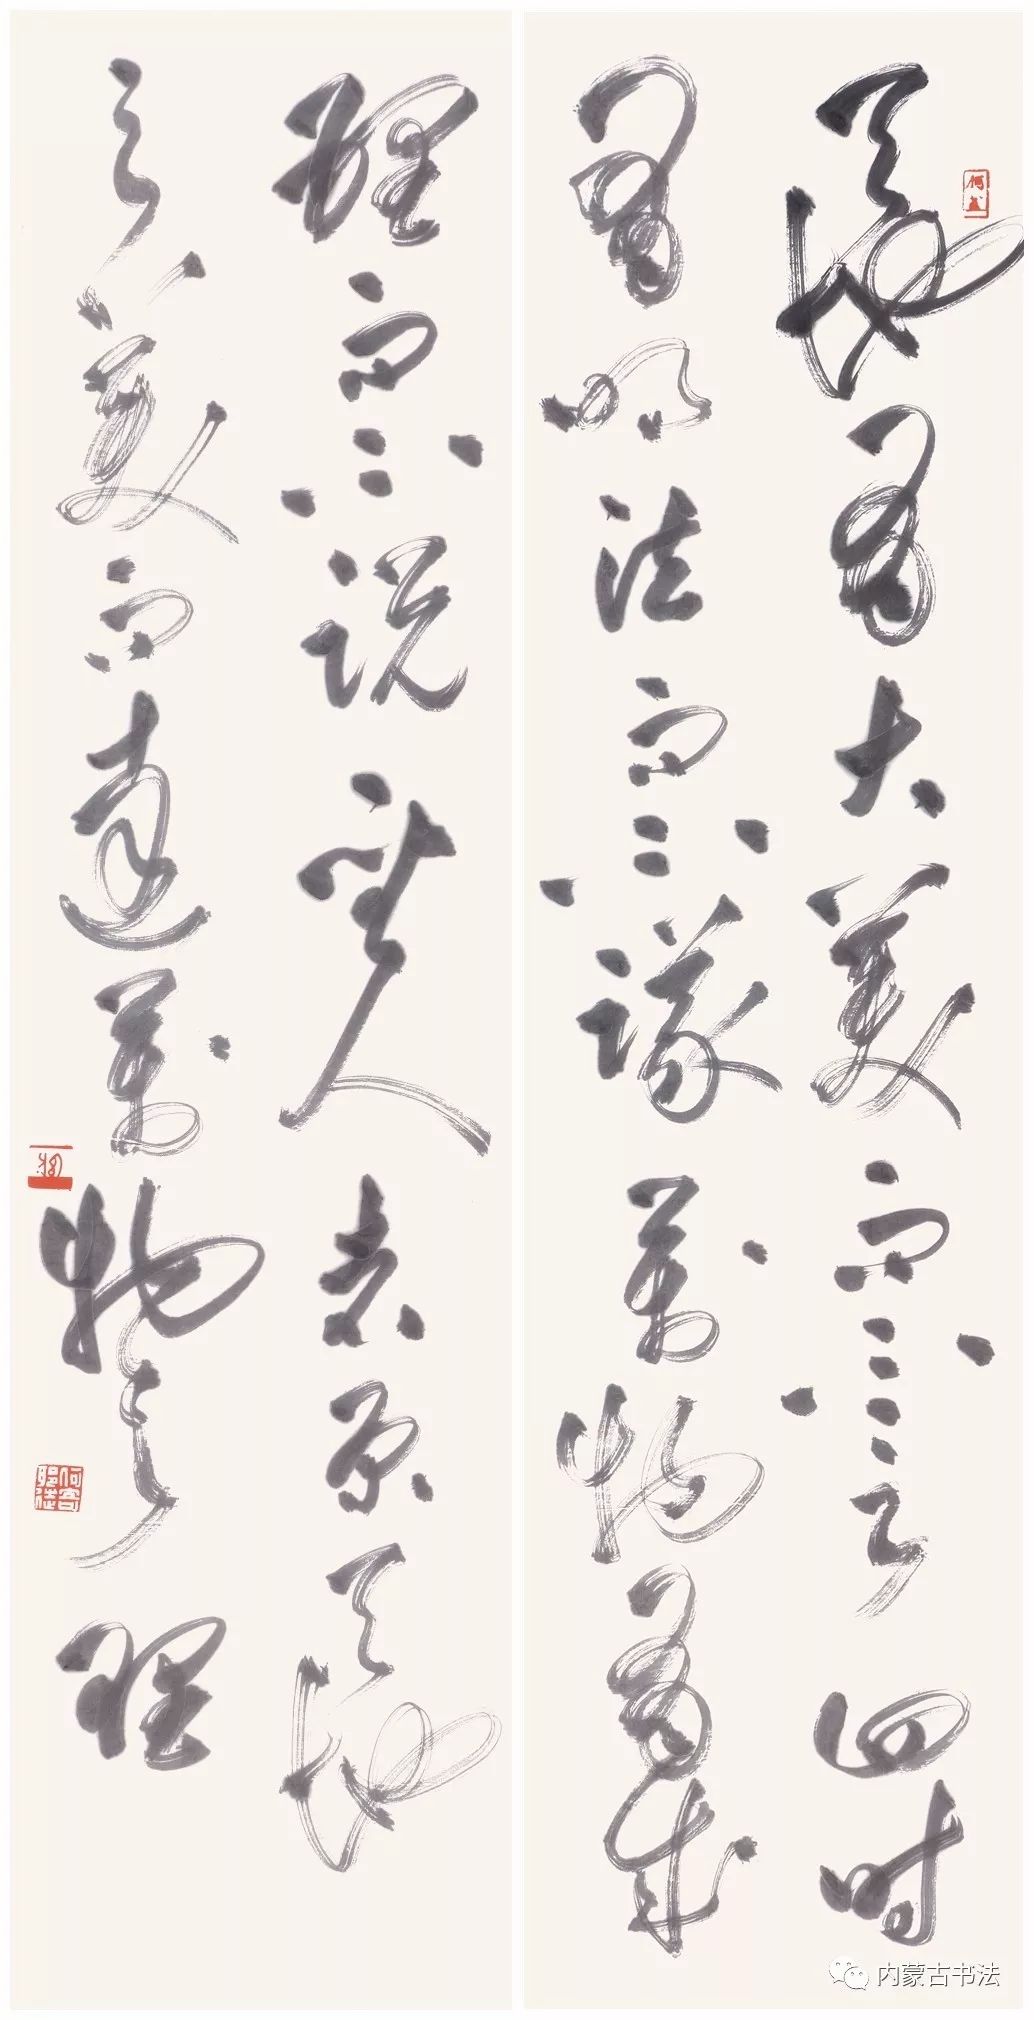 天地有大美而不言四时
有明法而不议万物有成
理而不说圣人者原天地
之美而达万物之理
内蒙古书法